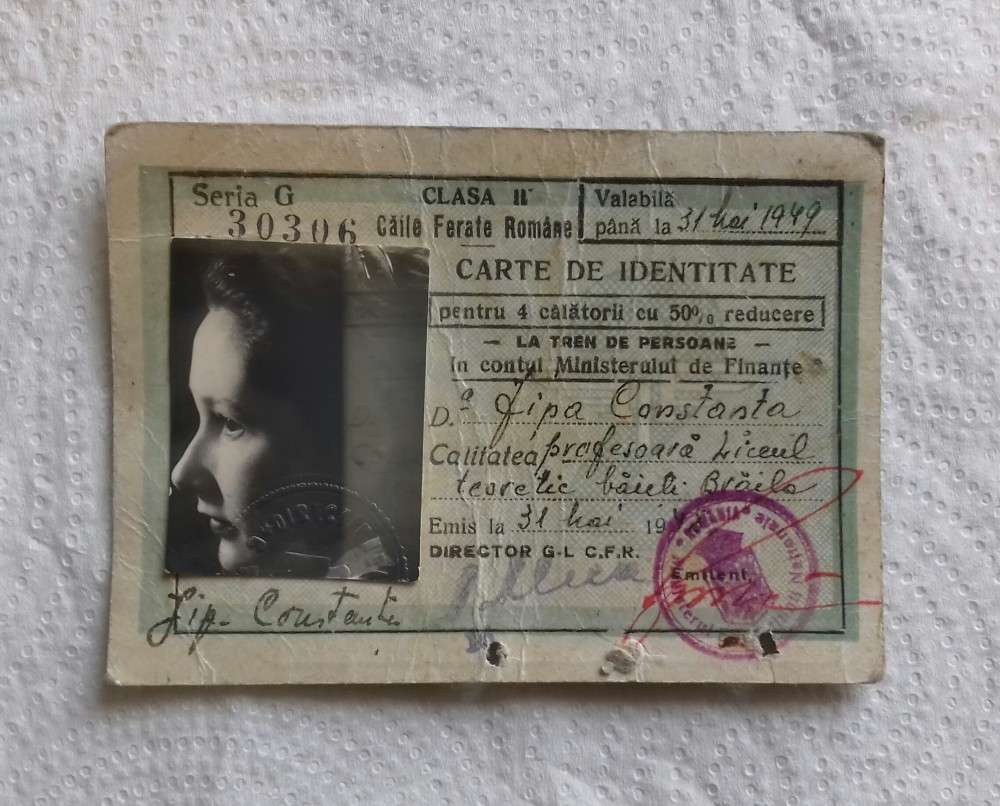 Seria G
30306
CLASA II
Căile Ferate Române
Valabilă
până la 31 Mai 1949
CARTE DE IDENTITATE
pentru 4 călătorii cu 50% reducere
— LA TREN DE PERSOANE —
În contul Ministerului de Finanțe
D.ª Jipa Constanta
Calitatea profesoară Liceul
teoretic băieti Brăila
Emis la 31 Mai 19
DIRECTOR G-L C.F.R.
Emitent,
Jip Constanta